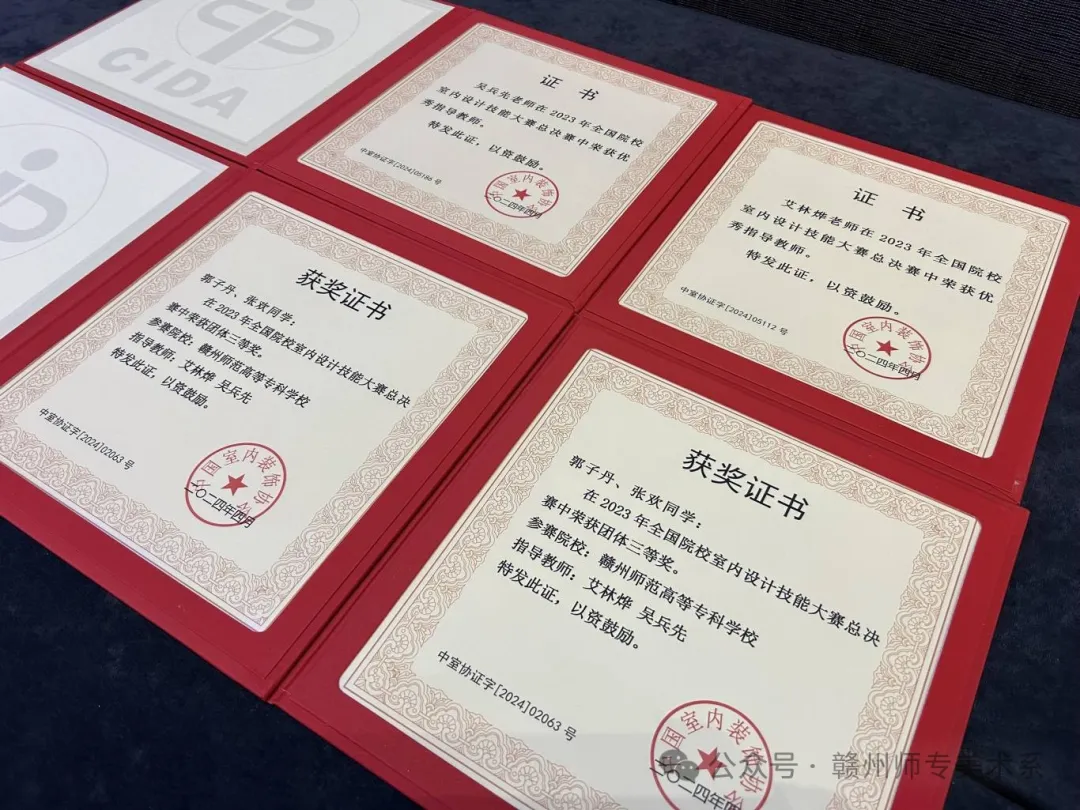 CIDA
证书
吴兵先老师在2023年全国院校
室内设计技能大赛总决赛中荣获优
秀指导教师。
特发此证，以资鼓励。
中室协证字[2024]05166号
国室内装饰协
二〇二四年四月
证书
艾林烨老师在2023年全国院校
室内设计技能大赛总决赛中荣获优
秀指导教师。
特发此证，以资鼓励。
中室协证字[2024]05112号
国室内装饰协
二〇二四年四月
获奖证书
郭子丹、张欢同学：
在2023年全国院校室内设计技能大赛总决
赛中荣获团体三等奖。
参赛院校：赣州师范高等专科学校
指导教师：艾林烨 吴兵先
特发此证，以资鼓励。
中室协证字[2024]02063号
国室内装饰协
二〇二四年四月
获奖证书
郭子丹、张欢同学：
在2023年全国院校室内设计技能大赛总决
赛中荣获团体三等奖。
参赛院校：赣州师范高等专科学校
指导教师：艾林烨 吴兵先
特发此证，以资鼓励。
中室协证字[2024]02063号
国室内装饰协
二〇二四年四
公众号·赣州师专美术系